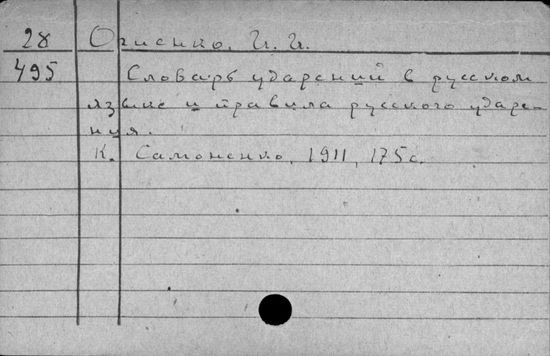 28 Огиенко, И. И.
495 Словарь ударений в русском
языке и правила русского ударе-
ния.
К. Самоненко, 1911, 175 с.